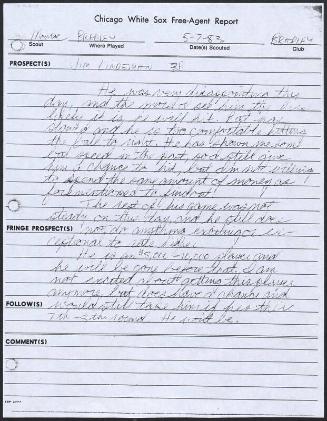 Chicago White Sox Free-Agent Report
BRADLEY 5-7-83 BRADLEY
Scout Where Played Date(s) Scouted Club
PROSPECT(S) JIM LINDEMAN 3B
He was very disappointing this
day, and the more I see him the less
likely it is he will hit. Bat may
slowed and he is too comfortable hitting
the ball to right. He has shown me some
bat speed in the past, so I still give
him a chance to hit, but I'm not willing
to spend the same amount of money as I
for
The rest of his game was not
steady on this day, and he still does
FRINGE PROSPECT(S) not do anything
to rate higher.
He is player and
he will be gone before that. I am
not excited about getting this player
anymore, but does have a chance and
FOLLOW(S) would still take him if he's there
7th-8th round. He won't be.
COMMENT(S)